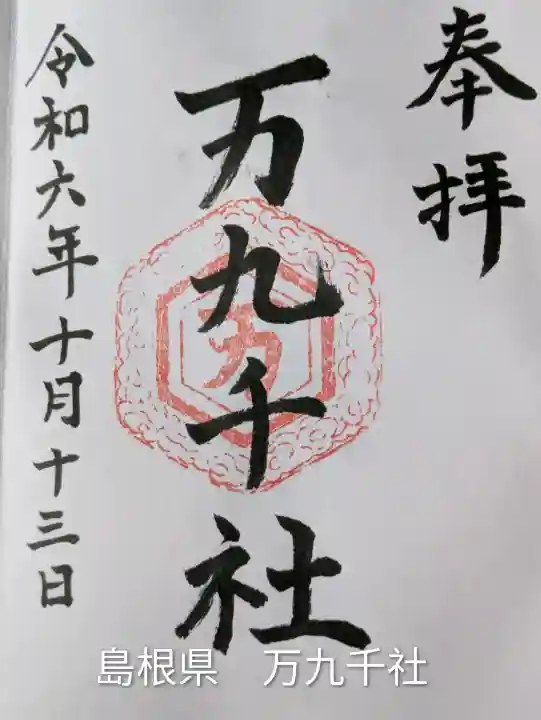 奉拝
万九千社
令和六年十月十三日
万
島根県　万九千社